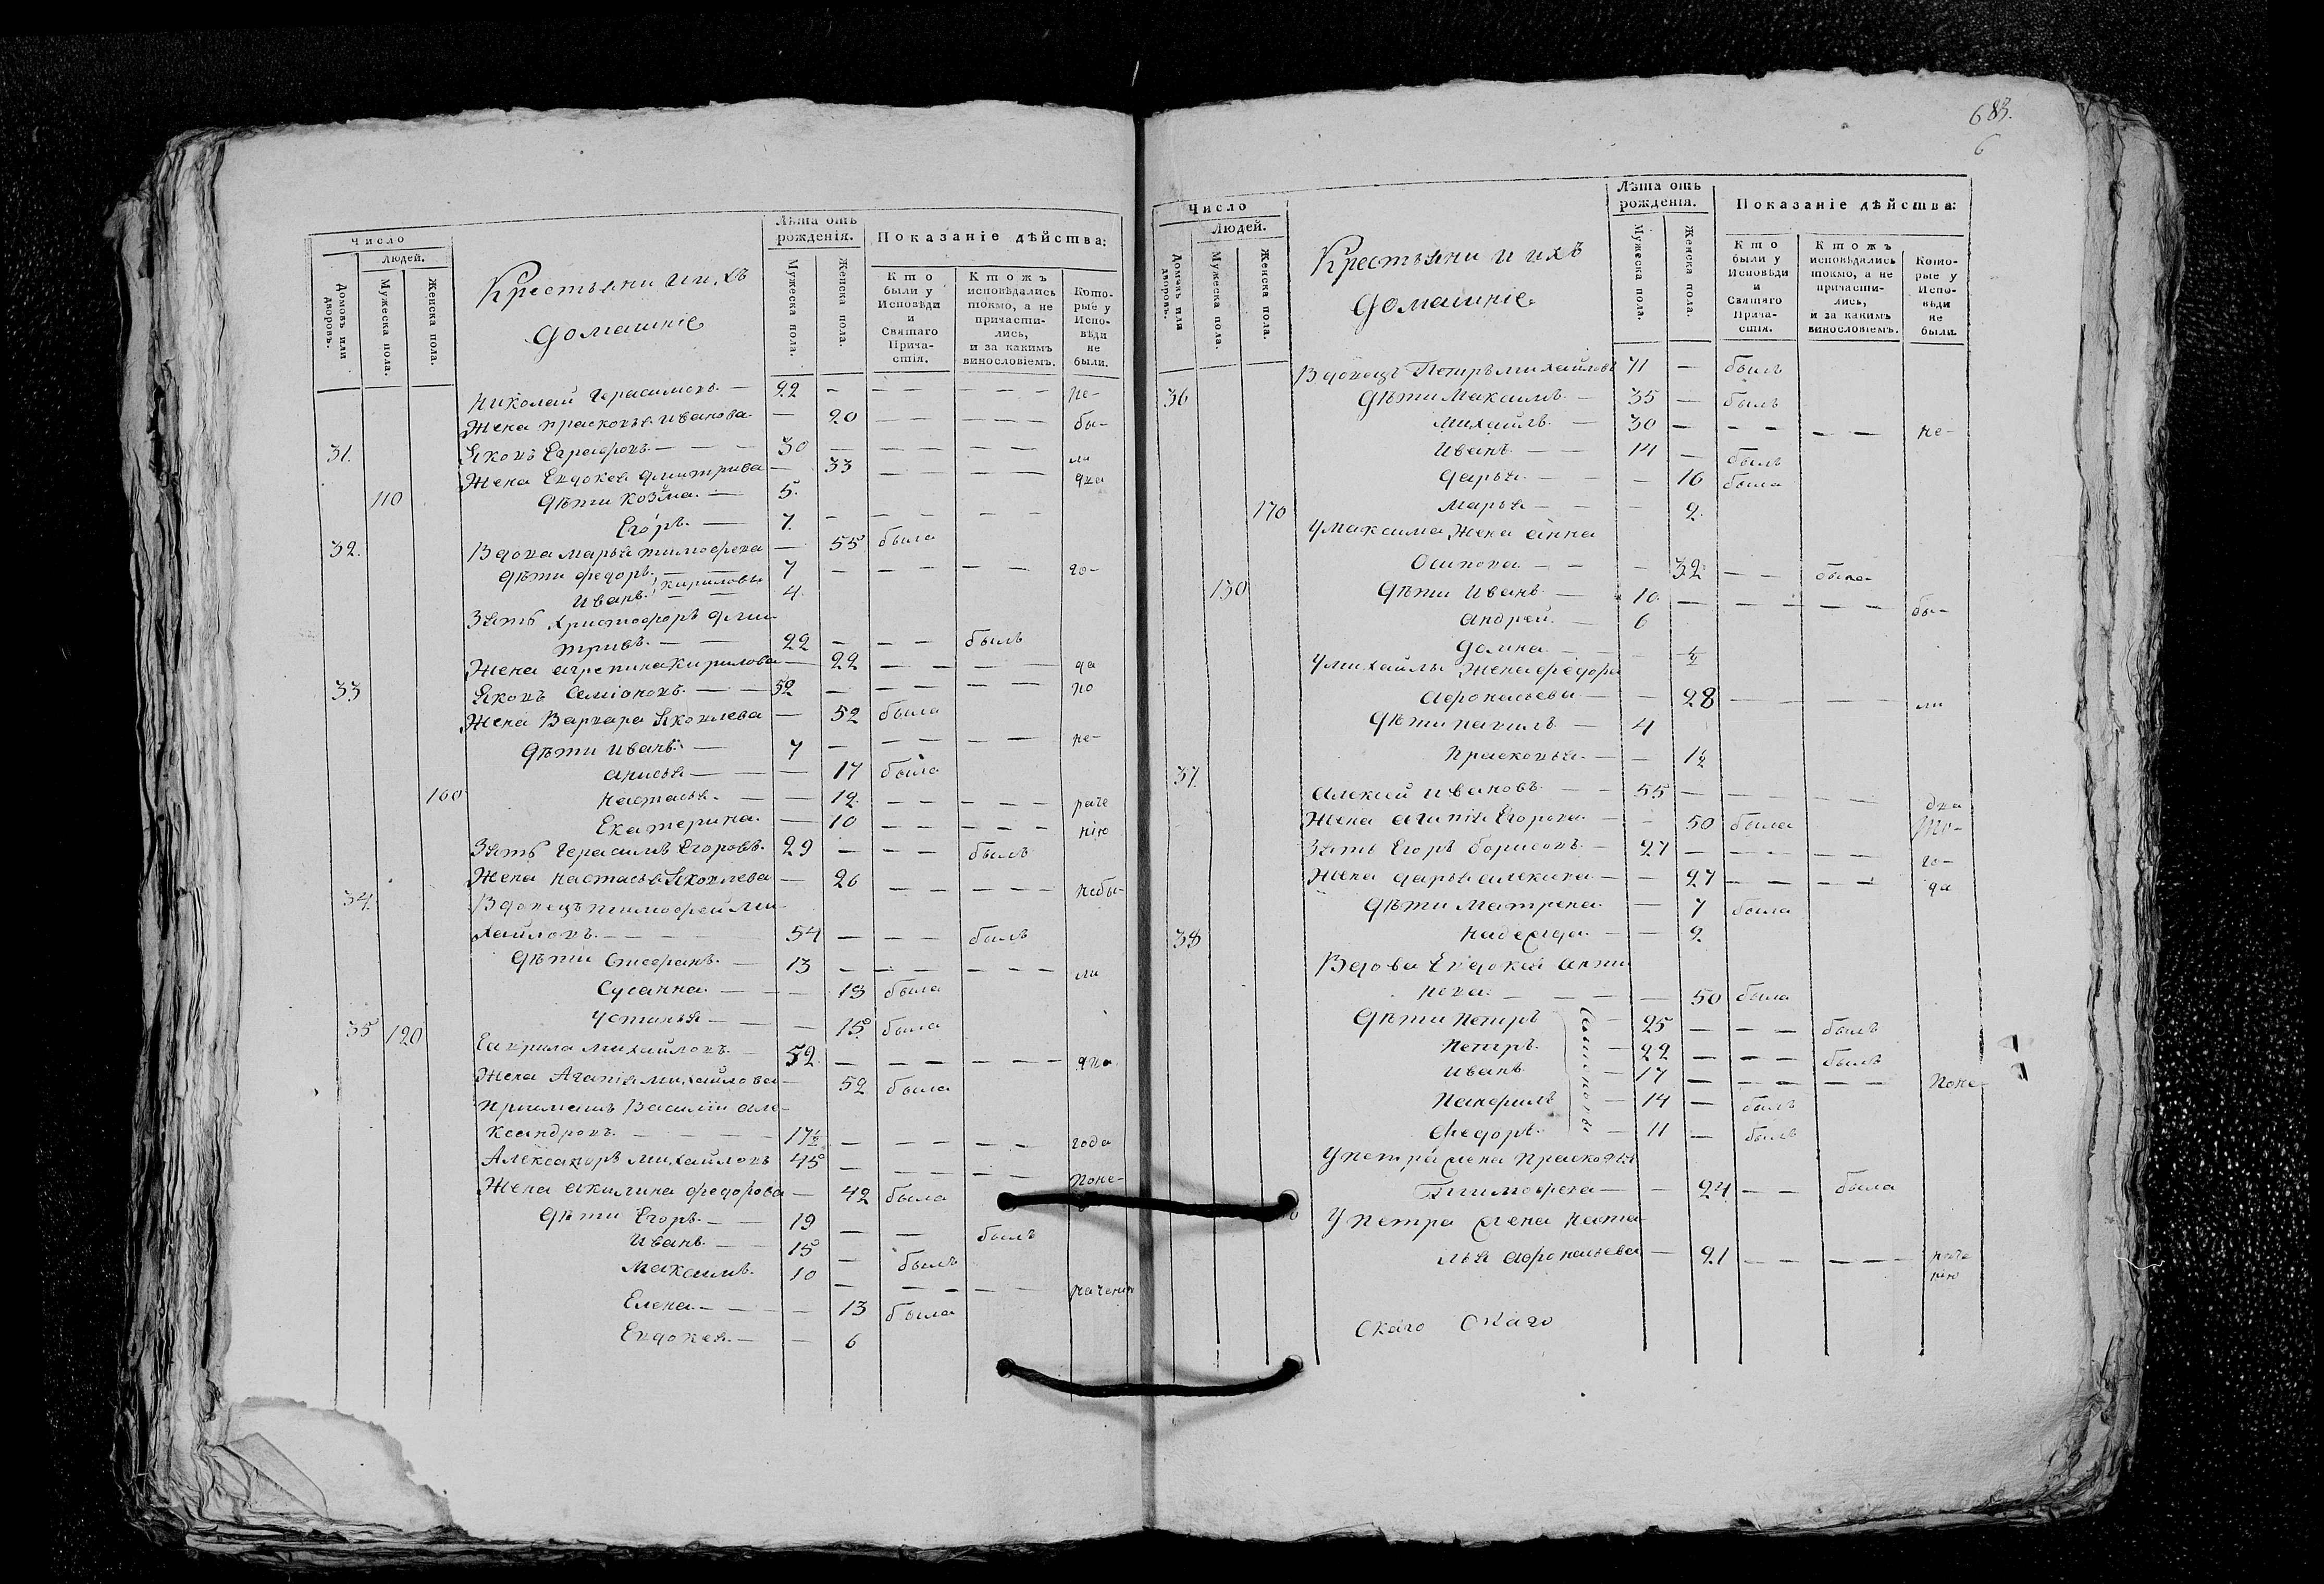 Число
Людей.
Домовъ или дворовъ.
Мужеска пола.
Женска пола.
Крестьяни и ихъ
домашніе
Лѣта отъ рожденія.
Мужеска пола.
Женска пола.
Показаніе дѣйства:
Кто были у Исповѣди и Святаго Прича-стія.
Ктожъ исповѣдались токмо, а не причасти-лись, и за какимъ винословіемъ.
Кото-рые у Испо-вѣди не были.
Николай Герасимовъ. — 22 — — — — — не-
Жена Прасковья Иванова. — 20 — — — — бы-
31. Яковъ Еграфовъ. — — — 30 — — — — — ли
Жена Евдокея Дмитрива — 33 — — — — два
110 Дѣти Козма. — 5.
Егоръ. — 7. — — — — —
32. Вдова Марья Тимофеева — 55 была
Дѣти Федоръ, — — 7 — — — — — го-
Иванъ. Кириловы — — 4.
Зять Христофоръ Дми-
тривъ. — — 22 — — — былъ
Жена Агрепина Кирилова — 22 — — — — да
33 Яковъ Симіоновъ. — — 52 — — — — — по
Жена Варвара Яковлева — 52 была
Дѣти Иванъ. — 7 — — — — — не-
Анисья — — — 17 была
160 Настасья. — — 12. — — — — — раче
Екатерина. — 10 — — — — — нію
Зять Герасимъ Егоровъ. 29 — — — былъ
Жена Настасья Яковлева — 26 — — — — — небы-
34. Вдовецъ Тимофей Ми-
хайловъ. — — — — 54 — — — былъ
Дѣти Стефанъ. — 13 — — — — — — ли
Сусанна. — — — 19 была
Устинья — — — 15 была
35 120 Гаврила Михайловъ. — 52 — — — — — — два
Жена Агапія Михайлова — 52 была
Приимышъ Василій Але-
ксандровъ. — — — — 17½ — — — — — года
Александръ Михайловъ 45 — — — — — поне-
Жена Акилина Федорова — 42 была
Дѣти Егоръ. — — 19 — — былъ
Иванъ. — — 15 — былъ
Максимъ. 10 — — — — — раченію
Елена. — — — 13 была
Евдокея. — — 6
683.
6
Число
Людей.
Домовъ или дворовъ.
Мужеска пола.
Женска пола.
Крестьяни и ихъ
домашніе
Лѣта отъ рожденія.
Мужеска пола.
Женска пола.
Показаніе дѣйства:
Кто были у Исповѣди и Святаго Прича-стія.
Ктожъ исповѣдались токмо, а не причасти-лись, и за какимъ винословіемъ.
Кото-рые у Испо-вѣди не были.
Вдовецъ Петръ Михайловъ 71 — былъ
36 Дѣти Максимъ. — 35 — былъ
Михайлъ. — 30 — — — — — не-
Иванъ. — — 14 — былъ
Дарья. — — — 16 была
170 Марья — — — 2.
У Максима Жена Анна
Осипова. — — — 32 — — была
130 Дѣти Иванъ. — 10. — — — — — бы-
Андрей. — 6
Домна. — — — ½
У Михайлы Жена Федора
Афонасьева — — 28 — — — ли
Дѣти Павилъ — 4
Прасковья. — — 1½
37. Алексій Ивановъ. — — 55 — — — — — два
Жена Агапія Егорова. — — 50 была то-
Зять Егоръ Борисовъ. — 27 — — — — — го-
Жена Дарья Алексива — — 27 — — — — да
Дѣти Матрена. — 7 была
38 Надежда. — — 2.
Вдова Евдокея Анти
пова. — — — — 50 была
Дѣти Петръ — 25 — — — былъ
Петръ. — 22 — — — былъ
Иванъ — 17 — — — — — поне-
Панфилъ — 14 — былъ
Федоръ. — 11 — былъ
У Петра жена Прасковья
Тимофеева — — 24 — — была
У Петра жена Наста-
лья Афонасьева — 21 — — — — — раче
нію
скаго скаго